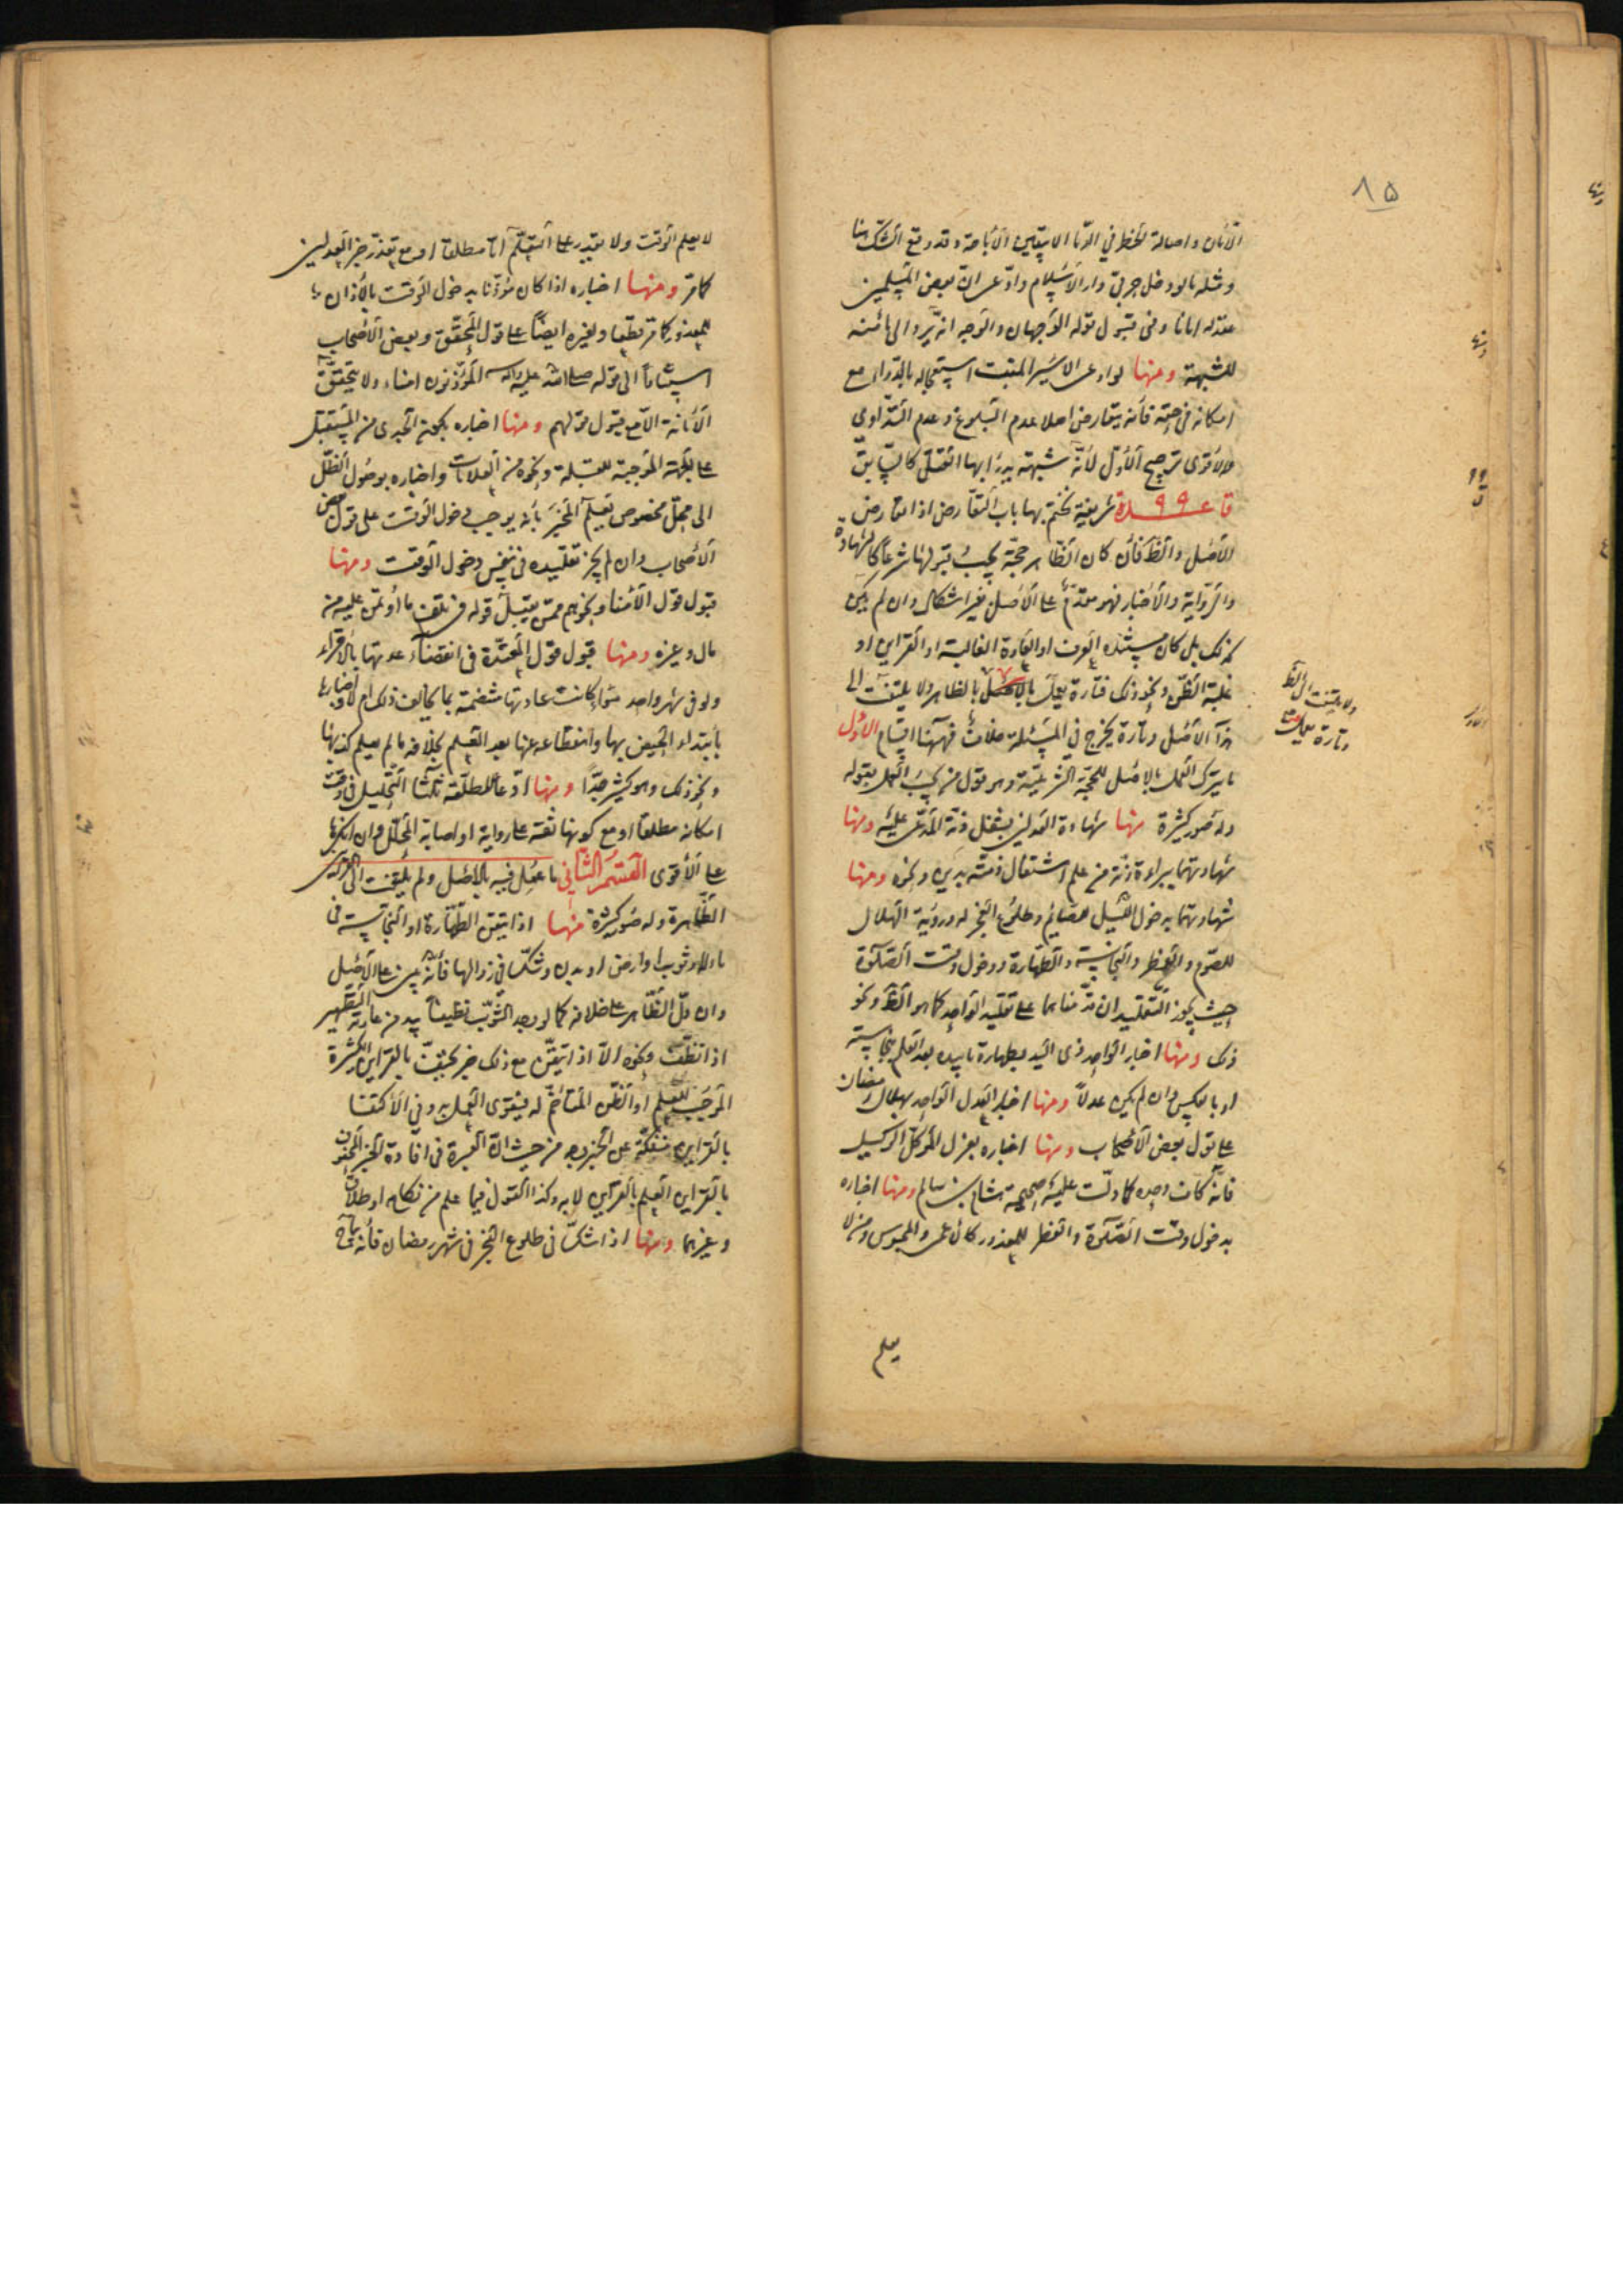 ٨۵
الأمان واصالة الحظر في الدّماء الا بيقين الأباحة وقد وقع الشك هنا
ومثله ما لو دخل حربيّ دار الأسلام وادّعى انّ بعض المسلمين
عقد له امانا وفى قبول قوله الوجهان والوجه انه يردّ الى مأمنه
للشبهة ومنها لو ادعى الاسير المنبت استعجاله بالدواء مع
امكانه فى حقه فأنه يتعارض اصلا عدم البلوغ وعدم التداوى
والأقوى ترجيح الأوّل لأنّه شبهة يدرأ بها القتل كالسابق
قاعدة ٩٩ شريفة نختم بها باب التعارض اذا تعارض
الأصل والظّ فأن كان الظاهر حجّة يجب قبولها شرعاً كالشهادة
والرّواية والأخبار فهو مقدّم على الأصل بغير اشكال وان لم يكن
كذلك بل كان مستنده العرف او العادة الغالبة او القراين او
غلبة الظّن ونحو ذلك فتارة يعمل بالأصل بالظاهر ولا يلتفت الى
هذا الأصل وتارة يخرج فى المسئلة خلاف فههنا اقسام الأول
ما يترك العمل بالاصل للحجّة الشرعيّة وهو قول من يجب العمل بقوله
وله صور كثيرة منها شهادة العدلين بشغل ذمّة المدّعى عليه ومنها
شهادتهما ببراءة ذمّة من علم اشتغال ذمّته بدين ونحوه ومنها
شهادتهما بدخول اللّيل للصايم وطلوع الفجر له ورؤية الهلال
للصوم والفطر والنجاسة والطهارة ودخول وقت الصّلوة
حيث يجوز التقليد ان قدّمناهما على تقليد الواحد كما هو الظّ ونحو
ذلك ومنها اخبار الواحد ذى اليد بطهارة ما بيده بعد العلم بنجاسته
او بالعكس وان لم يكن عدلاً ومنها اخبار العدل الواحد بهلال رمضان
على قول بعض الأصحاب ومنها اخباره بعزل الموكّل الوكيل
فانّه كاف وحده كما دلّت عليه صحيحة هشام بن سالم ومنها اخباره
بدخول وقت الصّلوة والفطر للمعذور كالأعمى والمحبوس ومن لا
يعلم
ولا يلتفت الى الظّ
وتارة يعمل
لا يعلم الوقت ولا يقدر على التعلّم امّا مطلقا او مع تعذّر خبر العدلين
كما مرّ ومنها اخباره اذا كان مؤذّنا بدخول الوقت بالأذان
للمعذور كما مرّ قطعا ولغيره ايضاً على قول المحقّق وبعض الأصحاب
استناداً الى قوله صلى الله عليه وآله المؤذّنون امناء ولا يتحقّق
الأمانة الاّ مع قبول قولهم ومنها اخباره بكون الجدى من المستقبل
على الجهة الموجبة للقبلة ونحوه من العلامات واخباره بوصول الظّل
الى محلّ مخصوص يعلم المخبَر بأنه يوجب دخول الوقت على قول بعض
الأصحاب وان لم يجز تقليده فى نفس دخول الوقت ومنها
قبول قول الأمنا ونحوهم ممّن يقبل قوله فى تلف ما اؤتمن عليه من
مال وغيره ومنها قبول قول المعتدّة فى انقضاء عدتها بالأقراء
ولو فى شهر واحد سواء كانت عادتها منتظمة بما يخالف ذلك ام لا واخبارها
بأبتداء الحيض بها وانقطاعه عنها بعد العلم بخلافه ما لم يعلم كذبها
ونحو ذلك وهو كثير جدّاً ومنها ادّعاء المطلّقة ثلاثا التحليل فى وقت
امكانه مطلقا او مع كونها ثقة على رواية او اصابة المحلّل وان انكرها
على الأقوى القسم الثّانى ما عمل فيه بالأصل ولم يلتفت الى القراين
الظاهرة وله صور كثيرة منها اذا تيقن الطهارة او النجاسة فى
ماء او ثوب او ارض او بدن وشكّ فى زوالها فأنّه يبنى على الأصل
وان دلّ الظّاهر على خلافه كما لو وجد الثّوب نظيفا بيد من عادته التطهير
اذا نظّف ونحوه الاّ اذا تيقّن مع ذلك خبر محتفّ بالقراين الكثيرة
الموجب للعلم او الظّن المتاخم له فيقوى العمل به وفى الأكتفا
بالقراين منفكّة عن الخبر وجه من حيث انّ العبرة فى افادة الخبر المحفوف
بالقراين العلم بالقراين لا به وكذا القول فيما علم من نكاح او طلاق
وغيرهما ومنها اذا شكّ فى طلوع الفجر فى شهر رمضان فأنّه يباح